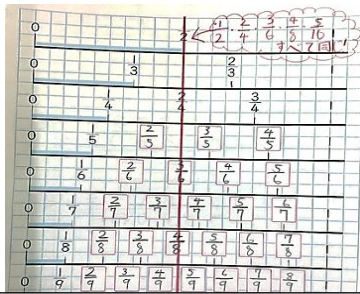 1/2 · 2/4 · 3/6 · 4/8 · 5/10
すべて同じ!
0 1/2 1
0 1/3 2/3
0 1/4 2/4 3/4
0 1/5 2/5 3/5 4/5
0 1/6 2/6 3/6 4/6 5/6
0 1/7 2/7 3/7 4/7 5/7 6/7
0 1/8 2/8 3/8 4/8 5/8 6/8 7/8
0 1/9 2/9 3/9 4/9 5/9 6/9 7/9 8/9